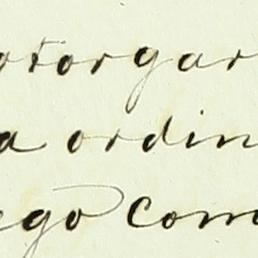 otorgar
a ordin
ego com